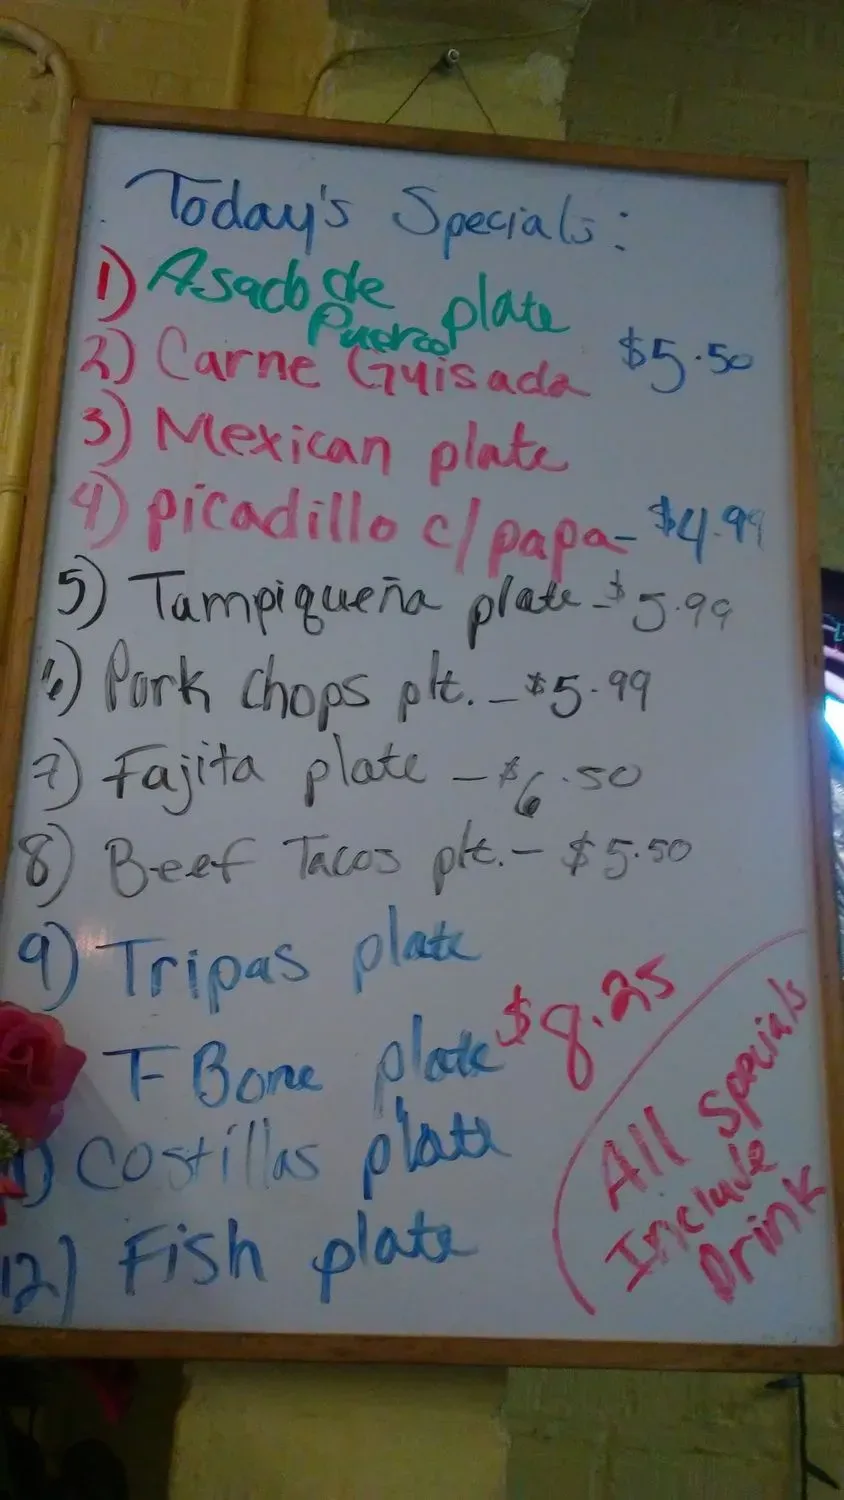 Today's Specials:
1) Asado de Puerco plate
2) Carne Guisada $5.50
3) Mexican plate
4) picadillo c/papa- $4.99
5) Tampiqueña plate - $5.99
6) Pork chops plt. - $5.99
7) Fajita plate - $6.50
8) Beef Tacos plt. - $5.50
9) Tripas plate
T-Bone plate $8.25
11) Costillas plate
12) Fish plate
All Specials
Include
Drink